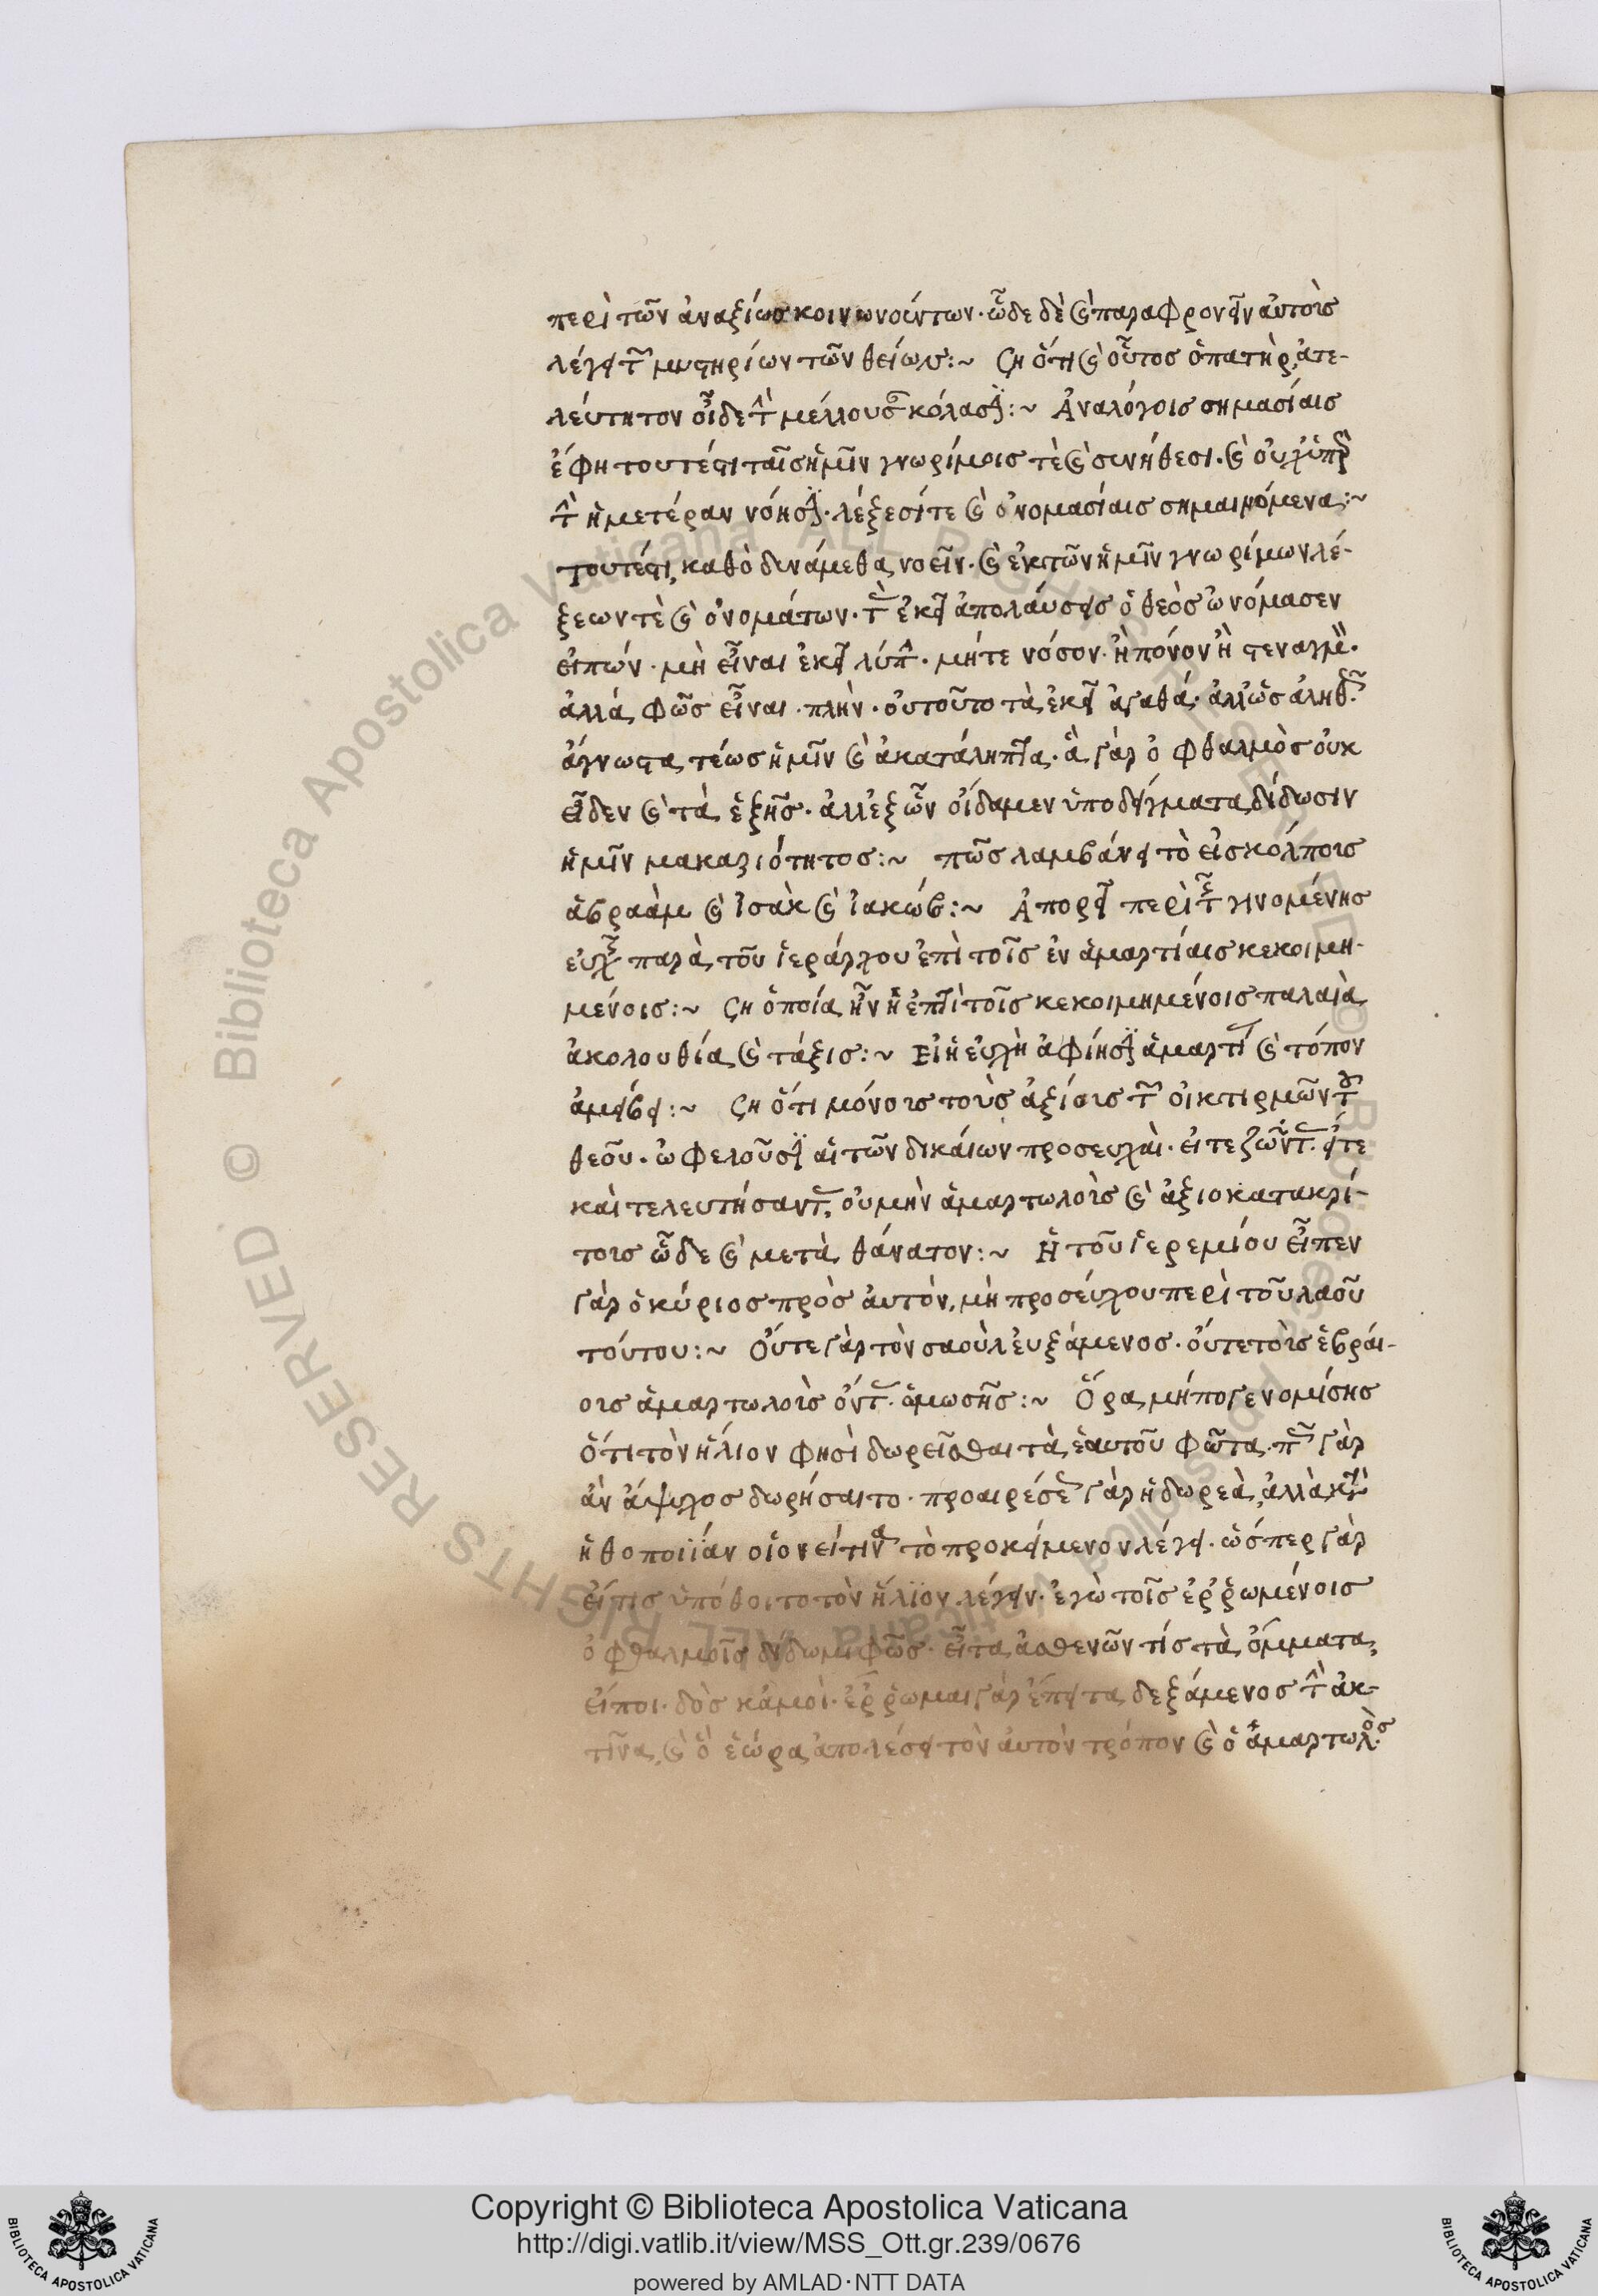 περὶ τῶν ἀναξίως κοινωνούντων· ὧδε δὲ κ̀ παραφρονεῖν αὐτοὺς
λέγει τῶν μυστηρίων τῶν θείων:~ ση ὅτι κ̀ οὗτος ὁ πατὴρ, ἀτε-
λεύτητον οἶδε τὴν μέλλουσαν κόλασιν:~ Ἀναλόγοις σημασίαις
ἔφη τουτέστι ταῖς ἡμῖν γνωρίμοις τὲ κ̀ συνήθεσι· κ̀ οὐχ ὑπὲρ
τὴν ἡμετέραν νόησιν· λέξεσί τε κ̀ ὀνομασίαις σημαινόμενα:~
τουτέστι, καθὸ δυνάμεθα νοεῖν· κ̀ ἐκ τῶν ἡμῖν γνωρίμων λέ-
ξεων τὲ κ̀ ὀνομάτων· τὰς ἐκεῖ ἀπολαύσεις ὁ θεὸς ὠνόμασεν
εἰπών· μὴ εἶναι ἐκεῖ λύπην· μήτε νόσον· ἢ πόνον ἢ στεναγμὸν·
ἀλλὰ φῶς εἶναι· πλὴν· οὐ τοῦτο τὰ ἐκεῖ ἀγαθά· ἀλλ' ὡς ἀληθῶς
ἄγνωστα τέως ἡμῖν κ̀ ἀκατάληπτα· ἃ γὰρ ὀφθαλμὸς οὐκ
εἶδεν κ̀ τὰ ἑξῆς· ἀλλ' ἐξ ὧν οἴδαμεν ὑποδείγματα δίδωσιν
ἡμῖν μακαριότητος:~ πῶς λαμβάνει τὸ εἰς κόλποις
ἁβραὰμ κ̀ ἰσὰκ κ̀ ἰακώβ:~ Ἀπορεῖ περὶ τῆς γινομένης
εὐχῆς παρὰ τοῦ ἱεράρχου ἐπὶ τοῖς ἐν ἁμαρτίαις κεκοιμη-
μένοις:~ ση ὁποία ἦν ἡ ἐπὶ τοῖς κεκοιμημένοις παλαιὰ
ἀκολουθία κ̀ τάξις:~ Εἰ ἡ εὐχὴ ἀφίησιν ἁμαρτίας κ̀ τόπον
ἀμείβει:~ ση ὅτι μόνοις τοὺς ἀξίοις τῶν οἰκτιρμῶν τοῦ
θεοῦ· ὠφελοῦσιν αἱ τῶν δικαίων προσευχαὶ· εἴτε ζῶντες· εἴτε
καὶ τελευτήσαντες, οὐ μὴν ἁμαρτωλοῖς κ̀ ἀξιοκατακρί-
τοις ὧδε κ̀ μετὰ θάνατον:~ Ἢ τοῦ ἱερεμίου εἶπεν
γὰρ ὁ κύριος πρὸς αὐτὸν, μὴ προσεύχου περὶ τοῦ λαοῦ
τούτου:~ Οὔτε γὰρ τὸν σαοὺλ εὐξάμενος· οὔτε τοῖς ἑβραί-
οις ἁμαρτωλοῖς ὄντες· ὁ μωσῆς:~ Ὅρα μήποτε νομίσης
ὅτι τὸν ἥλιον φησὶ δωρεῖσθαι τὰ ἑαυτοῦ φῶτα· πῶς γὰρ
ἂν ἄψυχος δωρήσαιτο· προαιρέσεως γὰρ ἡ δωρεὰ, ἀλλὰ κατὰ
ἠθοποιΐαν οἱονεί τινα τὸ προκείμενον λέγει· ὥσπερ γὰρ
εἴ τις ὑπόθοιτο τὸν ἥλϊον λέγειν· ἐγὼ τοῖς ἐῤῥωμένοις
ὀφθαλμοῖς δίδωμι φῶς· εἶτα ἀσθενῶν τίς τὰ ὄμματα,
εἴποι· δὸς κἀμοὶ· ἐῤῥωμαι γὰρ ἔπειτα δεξάμενος τὴν ἀκ-
τῖνα, κ̀ ὃ ἑώρα ἀπολέσει τὸν αὐτὸν τρόπον κ̀ ὁ ἁμαρτωλὸς
Biblioteca Apostolica Vaticana ALL RIGHTS RESERVED ©
Copyright © Biblioteca Apostolica Vaticana
http://digi.vatlib.it/view/MSS_Ott.gr.239/0676
powered by AMLAD·NTT DATA
BIBLIOTECA APOSTOLICA VATICANA
BIBLIOTECA APOSTOLICA VATICANA